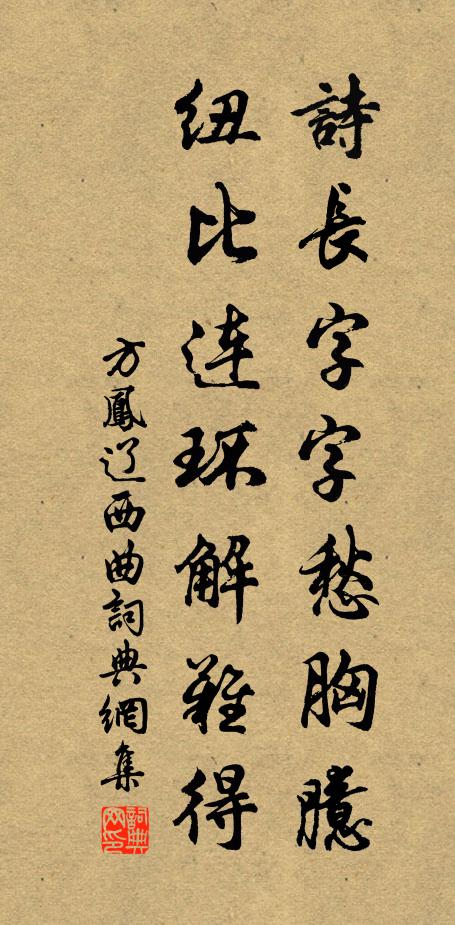 詩長字字愁胸臆
纽比连环解難得
方鳳辽西曲詞典網集
詞典网印